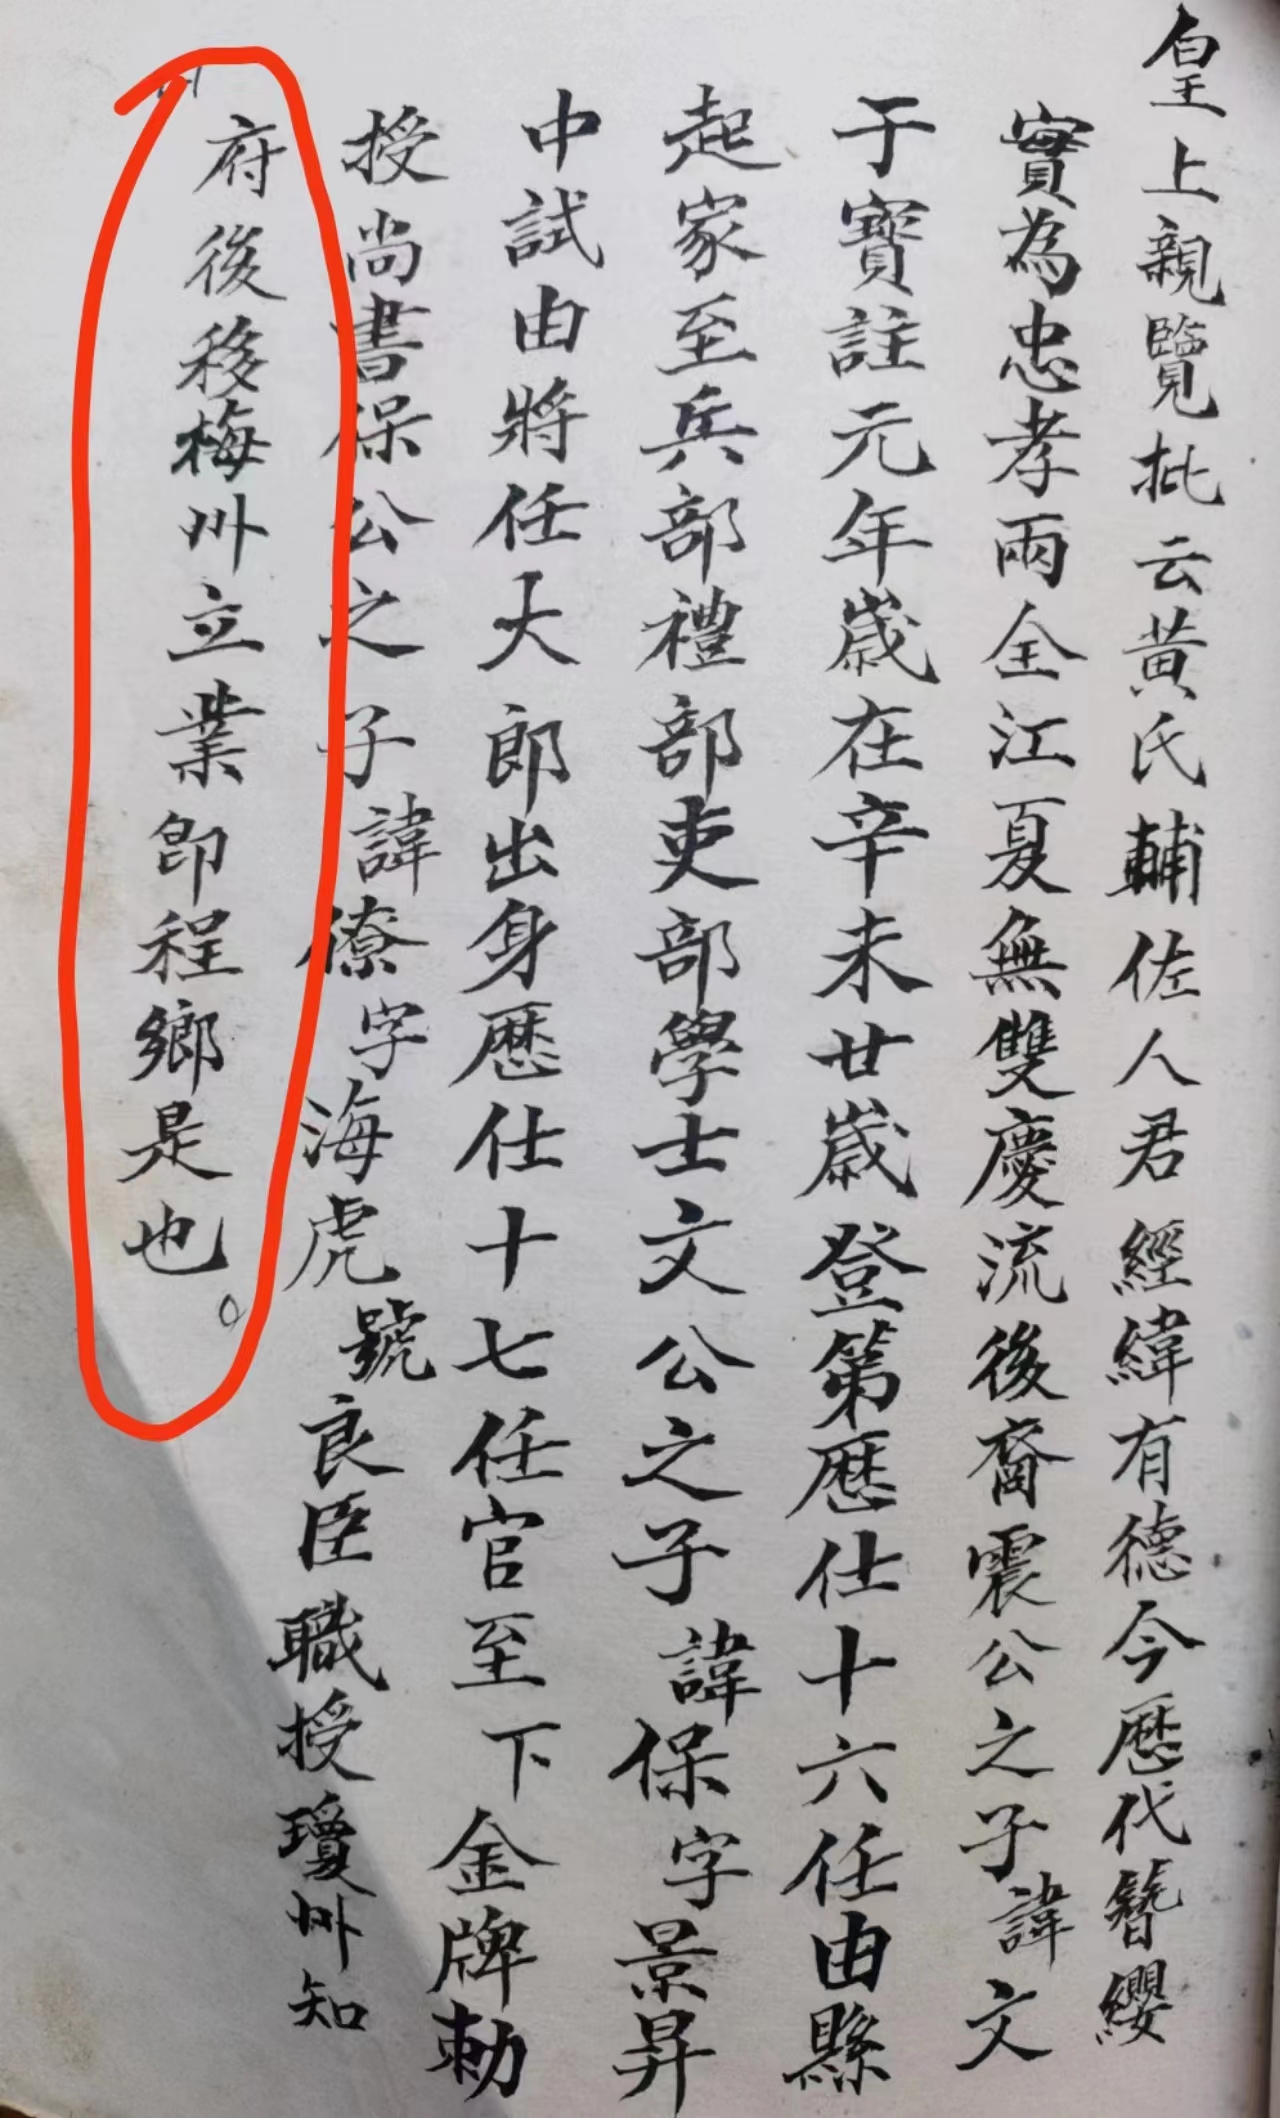 皇上親覽批云黃氏輔佐人君經緯有德今歷代簪纓
實為忠孝兩全江夏無雙慶流後裔震公之子諱文
于寶註元年歲在辛未廿歲登第歷仕十六任由縣
起家至兵部禮部吏部學士文公之子諱保字景昇
中試由將任大郎出身歷仕十七任官至下金牌勅
授尚書保公之子諱僚字海虎號良臣職授瓊州知
府後移梅州立業即程鄉是也